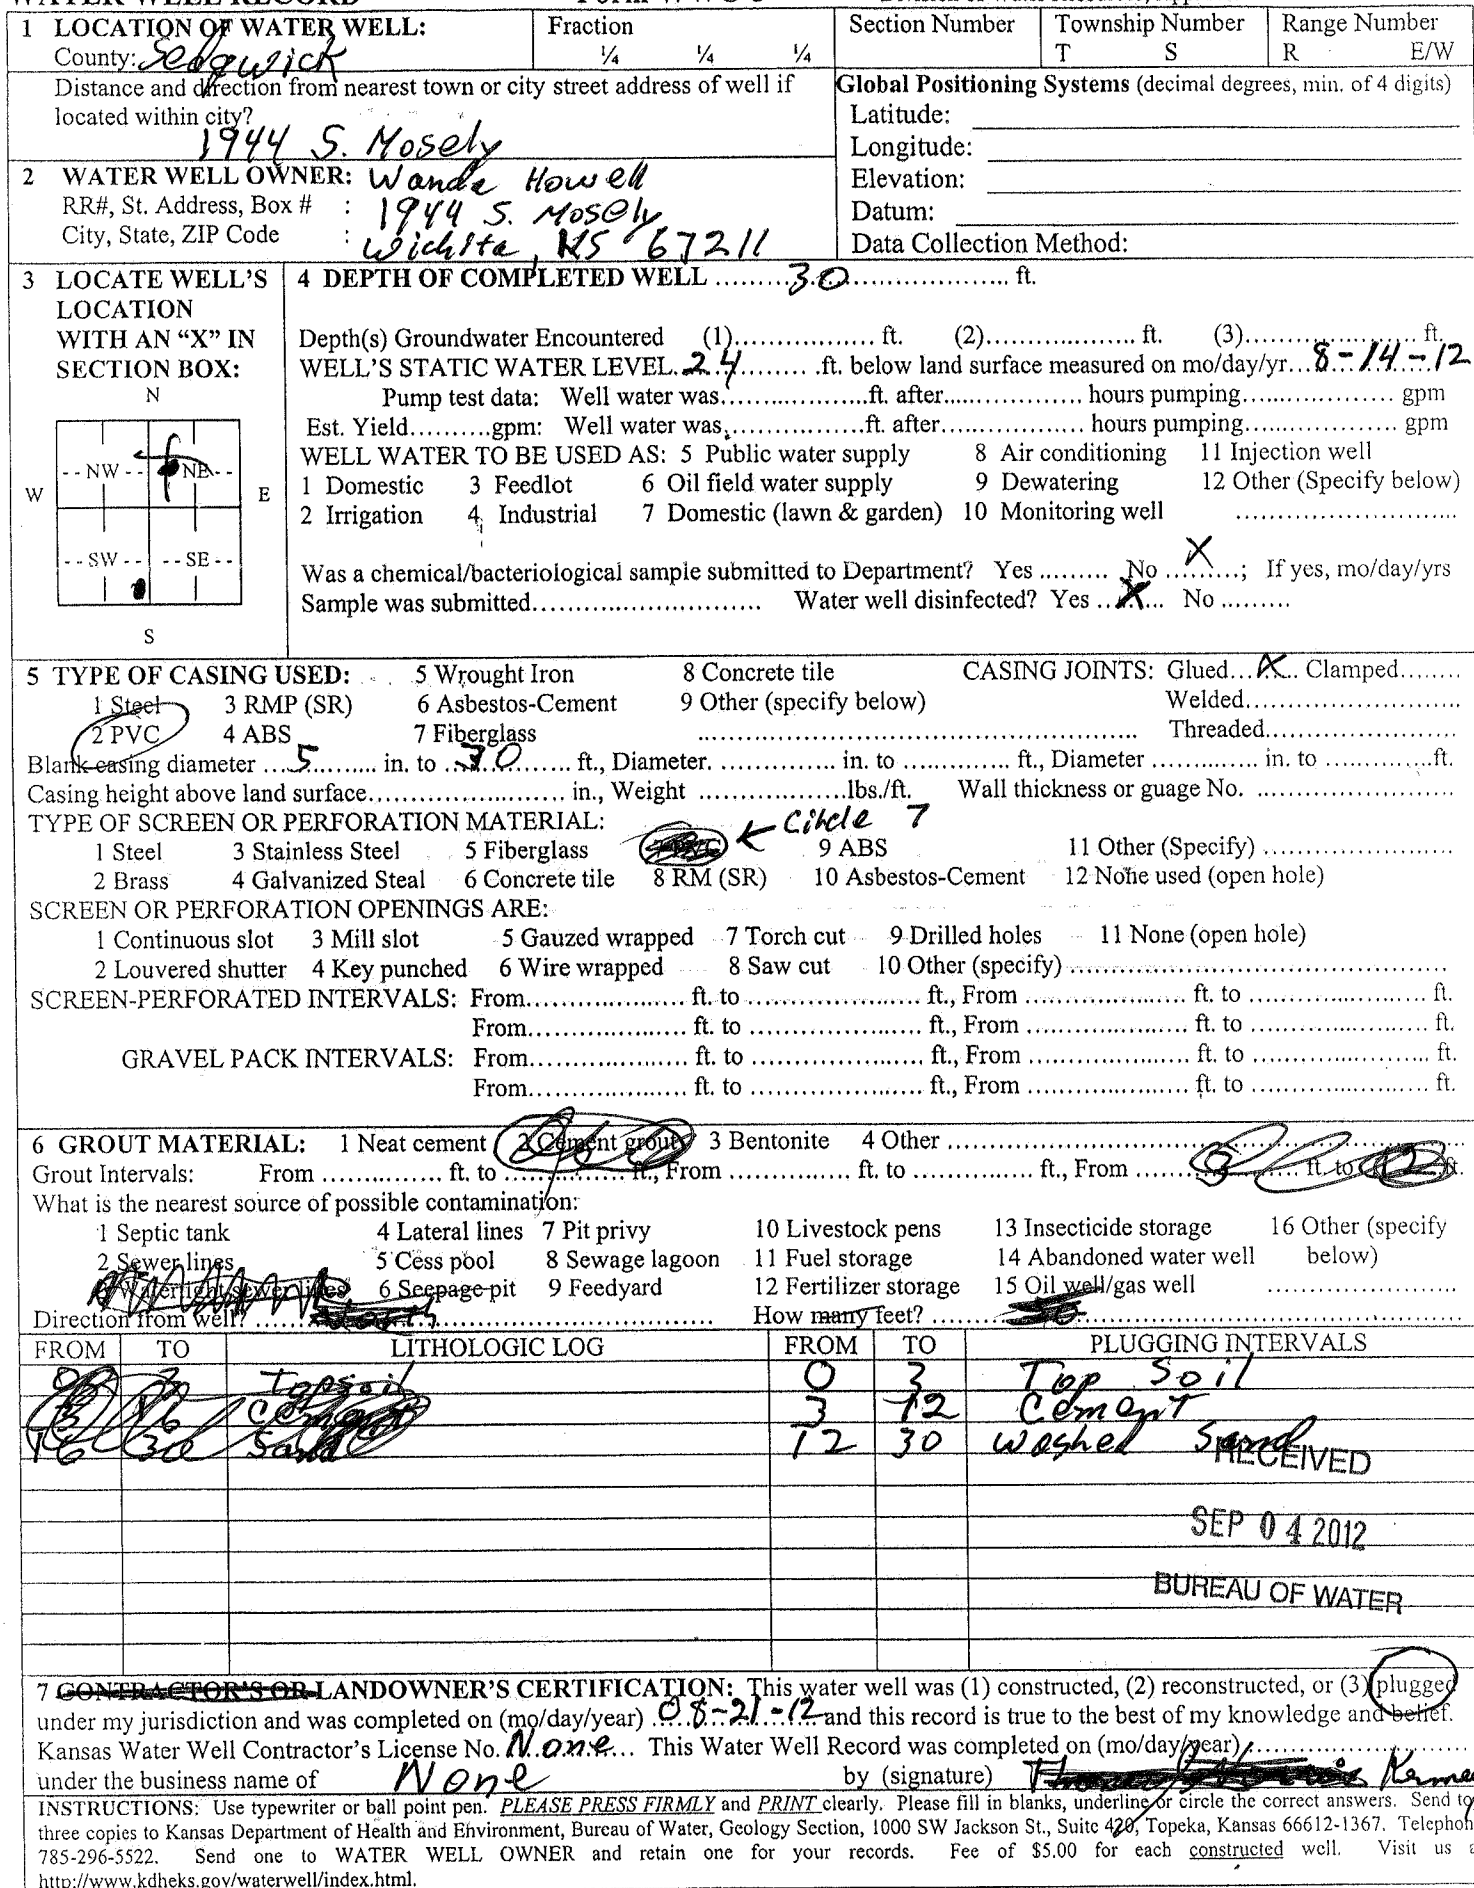 1 LOCATION OF WATER WELL: Fraction Section Number Township Number Range Number
County: Sedgwick ¼ ¼ ¼ T S R E/W
Distance and direction from nearest town or city street address of well if
located within city?
1944 S. Mosely
Global Positioning Systems (decimal degrees, min. of 4 digits)
Latitude:
Longitude:
Elevation:
Datum:
Data Collection Method:
2 WATER WELL OWNER: Wanda Howell
RR#, St. Address, Box # : 1944 S. Mosely
City, State, ZIP Code : Wichita, KS 67211
3 LOCATE WELL'S
LOCATION
WITH AN "X" IN
SECTION BOX:
N
NW NE
W E
SW SE
S
4 DEPTH OF COMPLETED WELL ........30.................... ft.
Depth(s) Groundwater Encountered (1)................. ft. (2).................. ft. (3)..................... ft.
WELL'S STATIC WATER LEVEL.24......... .ft. below land surface measured on mo/day/yr...8-14-12
Pump test data: Well water was..................ft. after................. hours pumping................... gpm
Est. Yield.........gpm: Well water was..................ft. after................. hours pumping................... gpm
WELL WATER TO BE USED AS: 5 Public water supply 8 Air conditioning 11 Injection well
1 Domestic 3 Feedlot 6 Oil field water supply 9 Dewatering 12 Other (Specify below)
2 Irrigation 4 Industrial 7 Domestic (lawn & garden) 10 Monitoring well ............................
Was a chemical/bacteriological sample submitted to Department? Yes ......... No ...X......; If yes, mo/day/yrs
Sample was submitted............................. Water well disinfected? Yes ..X... No .........
5 TYPE OF CASING USED: 5 Wrought Iron 8 Concrete tile CASING JOINTS: Glued...X.. Clamped........
1 Steel 3 RMP (SR) 6 Asbestos-Cement 9 Other (specify below) Welded...........................
2 PVC 4 ABS 7 Fiberglass ...................................................... Threaded........................
Blank casing diameter ...5.......... in. to ..30....... ft., Diameter. ................ in. to ................. ft., Diameter .............. in. to ..............ft.
Casing height above land surface......................... in., Weight ..................lbs./ft. Wall thickness or guage No. ........................
TYPE OF SCREEN OR PERFORATION MATERIAL: ← Circle 7
1 Steel 3 Stainless Steel 5 Fiberglass 9 ABS 11 Other (Specify) ........................
2 Brass 4 Galvanized Steal 6 Concrete tile 8 RM (SR) 10 Asbestos-Cement 12 None used (open hole)
SCREEN OR PERFORATION OPENINGS ARE:
1 Continuous slot 3 Mill slot 5 Gauzed wrapped 7 Torch cut 9 Drilled holes 11 None (open hole)
2 Louvered shutter 4 Key punched 6 Wire wrapped 8 Saw cut 10 Other (specify) ...............................................
SCREEN-PERFORATED INTERVALS: From.................... ft. to ..................... ft., From .................... ft. to ..................... ft.
From.................... ft. to ..................... ft., From .................... ft. to ..................... ft.
GRAVEL PACK INTERVALS: From.................... ft. to ..................... ft., From .................... ft. to ..................... ft.
From.................... ft. to ..................... ft., From .................... ft. to ..................... ft.
6 GROUT MATERIAL: 1 Neat cement 2 Cement grout 3 Bentonite 4 Other .................................................
Grout Intervals: From ............... ft. to ............... ft., From ................ ft. to ................ ft., From .......3....... ft. to ..12.. ft.
What is the nearest source of possible contamination:
1 Septic tank 4 Lateral lines 7 Pit privy 10 Livestock pens 13 Insecticide storage 16 Other (specify
2 Sewer lines 5 Cess pool 8 Sewage lagoon 11 Fuel storage 14 Abandoned water well below)
3 Watertight sewer lines 6 Seepage pit 9 Feedyard 12 Fertilizer storage 15 Oil well/gas well ........................
Direction from well? .................................................... How many feet? ....................................................
FROM TO LITHOLOGIC LOG FROM TO PLUGGING INTERVALS
0 3 Topsoil 0 3 Top Soil
3 16 Cement 3 12 Cement
16 30 Sand 12 30 Washed Sand
RECEIVED
SEP 04 2012
BUREAU OF WATER
7 CONTRACTOR'S OR LANDOWNER'S CERTIFICATION: This water well was (1) constructed, (2) reconstructed, or (3) plugged
under my jurisdiction and was completed on (mo/day/year) ..08-21-12..and this record is true to the best of my knowledge and belief.
Kansas Water Well Contractor's License No. None... This Water Well Record was completed on (mo/day/year).........................
under the business name of None by (signature)
INSTRUCTIONS: Use typewriter or ball point pen. PLEASE PRESS FIRMLY and PRINT clearly. Please fill in blanks, underline or circle the correct answers. Send to
three copies to Kansas Department of Health and Environment, Bureau of Water, Geology Section, 1000 SW Jackson St., Suite 420, Topeka, Kansas 66612-1367. Telephon
785-296-5522. Send one to WATER WELL OWNER and retain one for your records. Fee of $5.00 for each constructed well. Visit us a
http://www.kdheks.gov/waterwell/index.html.